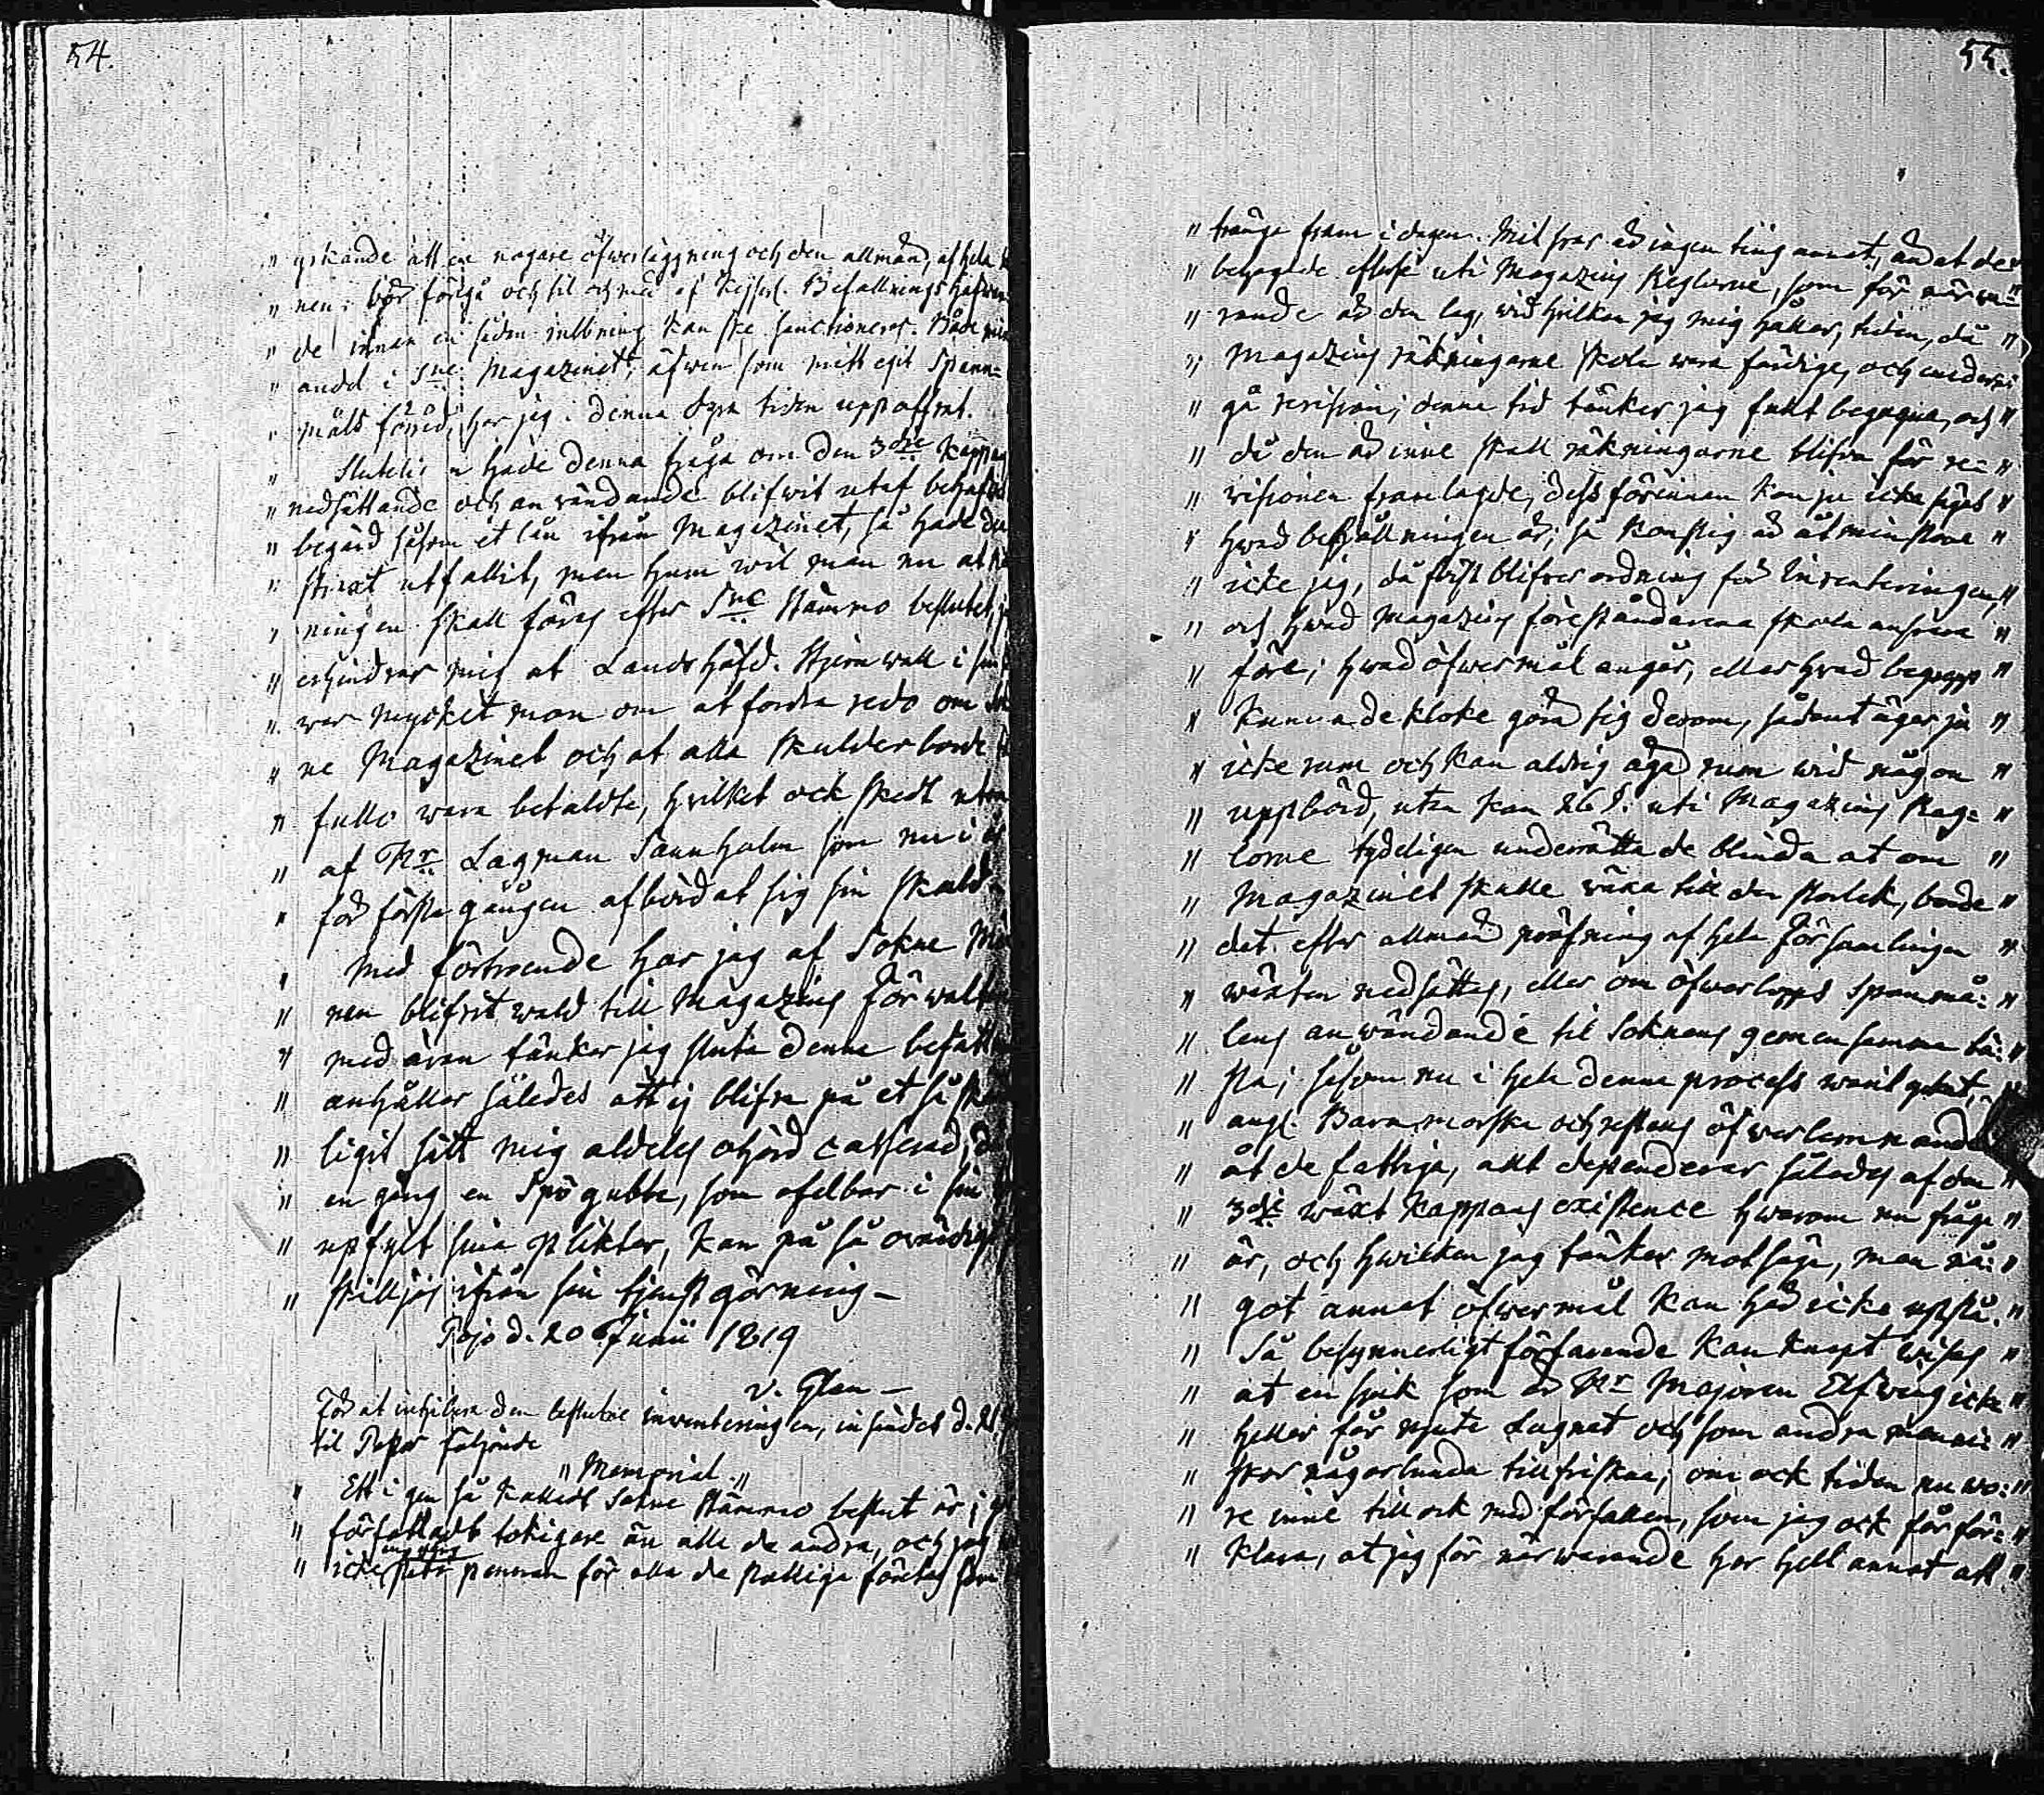 54.
" yrkande att en nogare öfwerläggning och den allmänd, af hela
" nen, bör föregå och til och med af Kejserl. Befallnings hafwan
" de innan en sådan inlösning kan ske sanctioneras. Både min
" andel i Sne Magazinet, äfwen som mitt egit Spann=
" måls förråd, har jag i denna dyra tiden uppoffrat.
" Slutelig hade denna fråga om den 3die Kappans
" nedsättande och anwändande blifwit utaf
" begärd såsom et lån ifrån Magazinet, så hade
" straxt utfallit, men hwem wil man nu at
" ningen skall föras efter Sne Stämmo beslutet,
" erhindrar mig at Landshöfd. Stjernwall i sin
" war mycket mon om at fordra redo om
" ne Magazinet och at alla skulder borde
" fullo wara betaldte, hvilket ock skedt utom
" af Hr Lagman Sannholm som nu i
" för första gången afbördat sig sin skuld
" Med förtroende har jag af Sokne
" nen blifvit wald till Magazins Förwalt
" med äran tänker jag sluta denne befatt
" anhåller således att ej blifva på et så
" ligit sätt mig aldeles ohörd casserad,
" en gång en Spögubbe, som ofelbar i sin
" upfylt sina plikter, kan på så owärdigt
" skiljas ifrån sin tjenstgörning –
Pojo d. 20 Junii 1819
v. Glan –
För at inhibera den beslutne inventeringen, insändes d. 21
til Pastor följande
" Memorial "
" Ett i gen så kallad Sokne Stämmo beslut är
" författadt tokigare än alla de andra, och jag
" icke pennan för alla de stolliga företag som
55.
" tränga fram i dagen. Mit svar är ingen ting annat, än at der "
" behagade efterse uti Magazins Reglorne, som för närwa= "
" rande är den lag, wid hvilken jag mig håller, tiden, då "
" Magazins räkningarne skola wara färdige, och under=
" gå revision; denne tid tänker jag fullt begagna, och "
" då den är inne skall räkningarne blifva för re= "
" visionen framlagde, dess förinnan kan ju icke sägas "
" hwad behållningen är; så konstig är åtminstone "
" icke jag, då först blifver ordning för Inventeringen, "
" och hwad Magazins föreståndarena skola answara "
" före; hwad öfwermål angår, eller hvad begrepp "
" kunna de kloke göra sig derom, sådant äger ju "
" icke rum och kan aldrig äga rum wid någon "
" uppbörd, utan kan 26 §. uti Magazins Reg= "
" lorne tydeligen underrätta de blinda at om "
" Magazinet skulle wäxa till den storlek, borde "
" det efter allmän pröfning af hela Församlingen "
" wäxten nedsättas, eller om öfwerlopps Spanmå= "
" lens anwändande til Soknens gemensamma bä= "
" sta; såsom nu i hela denna process warit ,
" ang. Barnmorska och restens öfwerlemnande
" åt de fattiga, allt dependerar således af den "
" 3die wäxt Kappans existence hwarom nu fråga "
" är, och hwilken jag tänker motsäga, men nå= "
" got annat öfwermål kan här icke upstå. "
" Så besynnerligt förfarande kan knapt wisas "
" at en sjuk som är Hr Majoren Elfwing icke "
" heller får njuta Lugnet och som andra menni= "
" skor någorlunda tillfriskna; om ock tiden nu wo= "
" re inne till ock med förfallen, som jag ock får för= "
" klara, at jag för närwarande har helt annat att "